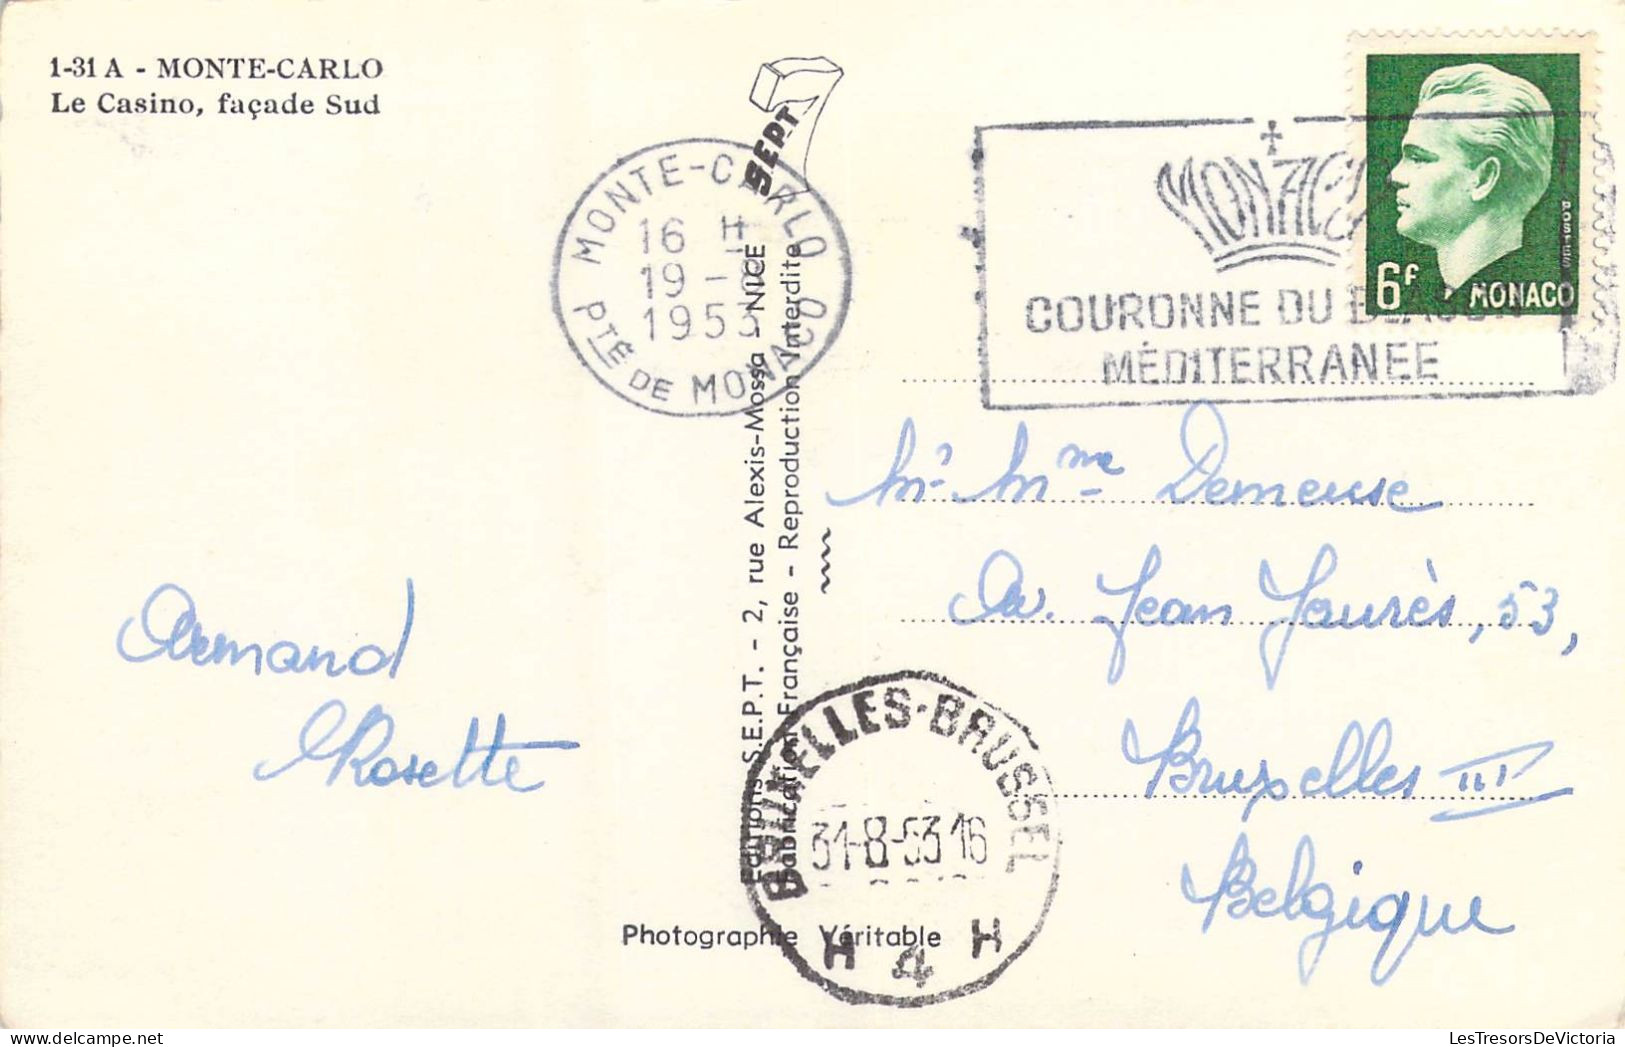 1-31 A - MONTE-CARLO
Le Casino, façade Sud
SEPT
MONTE-CARLO
16 H
19 - 8
1953
PTÉ DE MONACO
MONACO
COURONNE DU BLASON
MÉDITERRANÉE
POSTES
6F
MONACO
Editions S.E.P.T. - 2, rue Alexis-Mossa - NICE
Fabrication Française - Reproduction Interdite
Mr Mme Demeuse
Av. Jean Jaurès, 53,
Bruxelles III
Belgique
Armand
Rosette
BRUXELLES-BRUSSEL
31-8-53 16
H 4 H
Photographie Véritable
LesTresorsDeVictoria